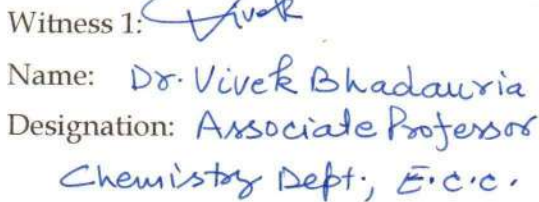 Witness 1: Vivek
Name: Dr. Vivek Bhadauria
Designation: Associate Professor
Chemistry Dept., E.C.C.